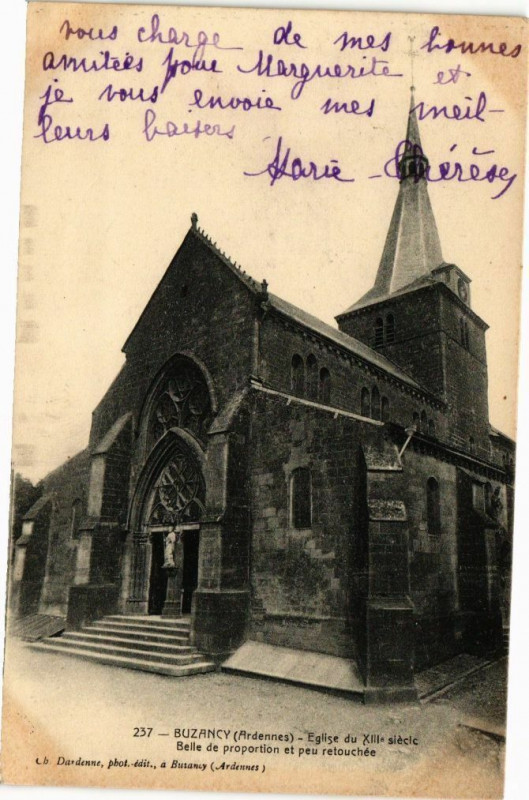 vous charge de mes bonnes
amitiées pour Marguerite et
je vous envoie mes meil-
leurs baisers
Marie-Thérèse
237 — BUZANCY (Ardennes) - Eglise du XIIIe siècle
Belle de proportion et peu retouchée
Ch. Dardenne, phot.-édit., à Buzancy (Ardennes)